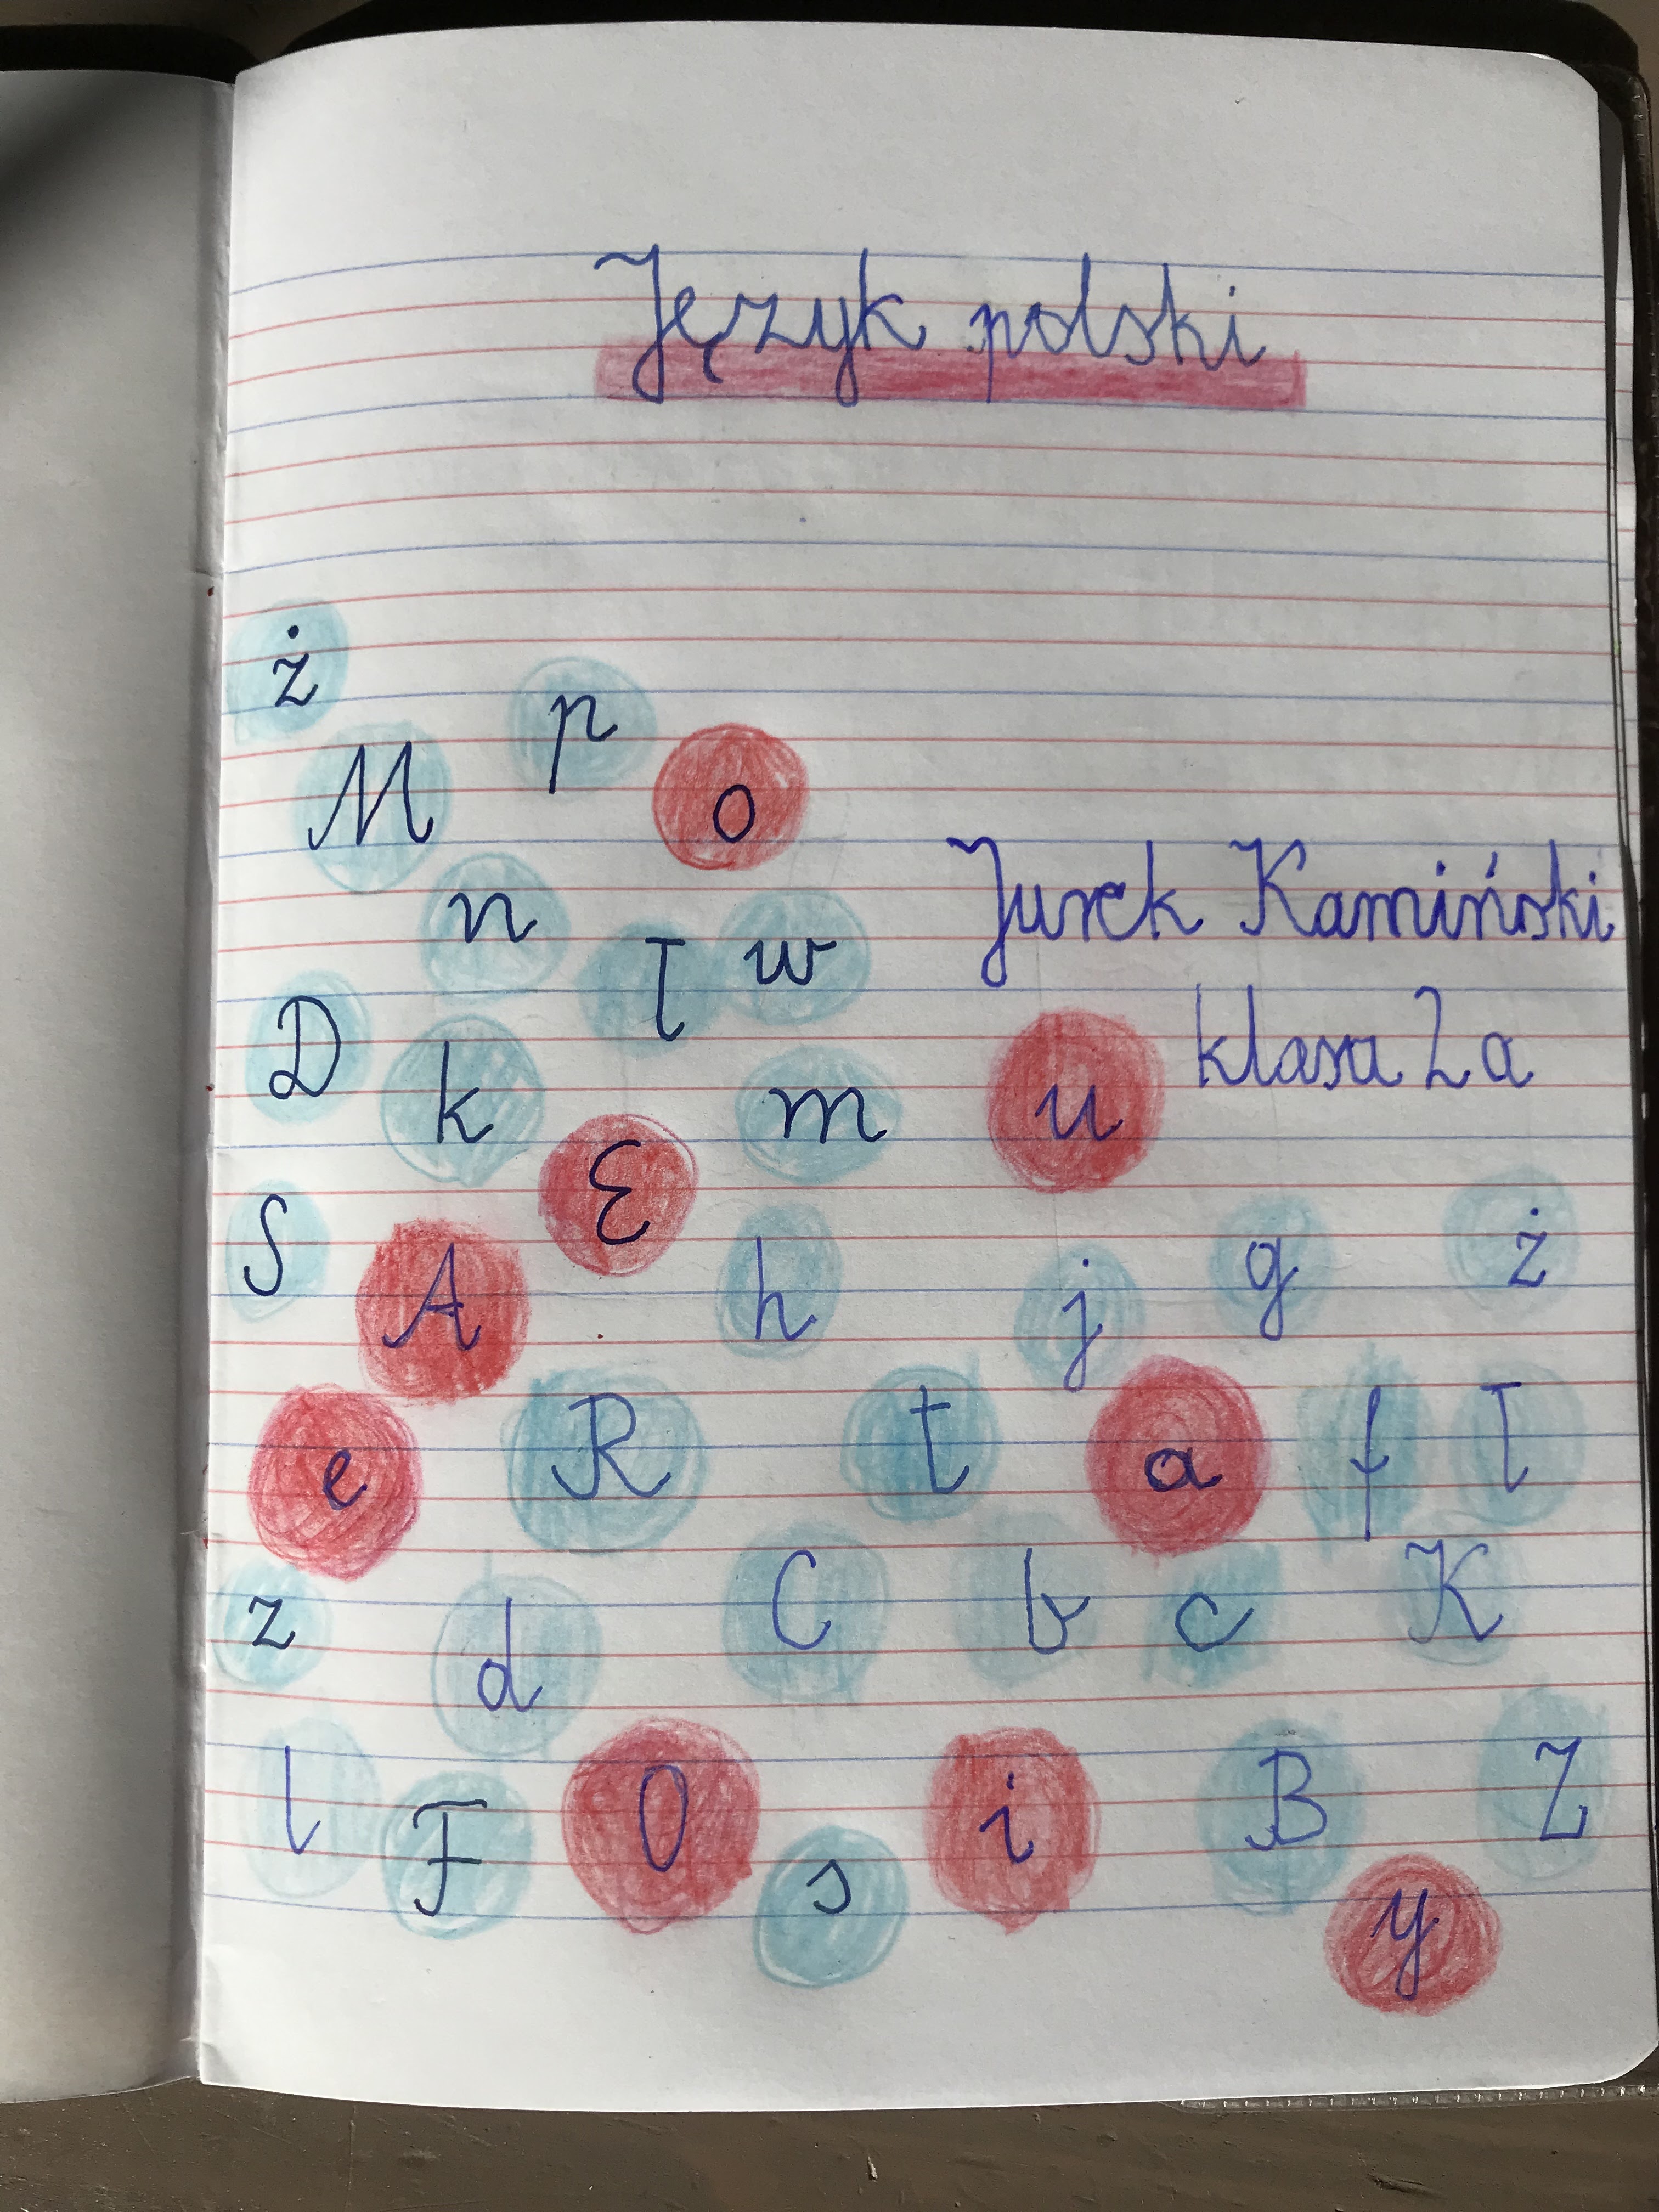 Język polski
ż
p
M
o
n
T
w
Jurek Kamiński
D
k
m
u
klasa 2 a
E
S
A
h
j
g
ż
e
R
t
a
f
T
z
d
C
b
c
K
l
F
O
s
i
B
Z
y